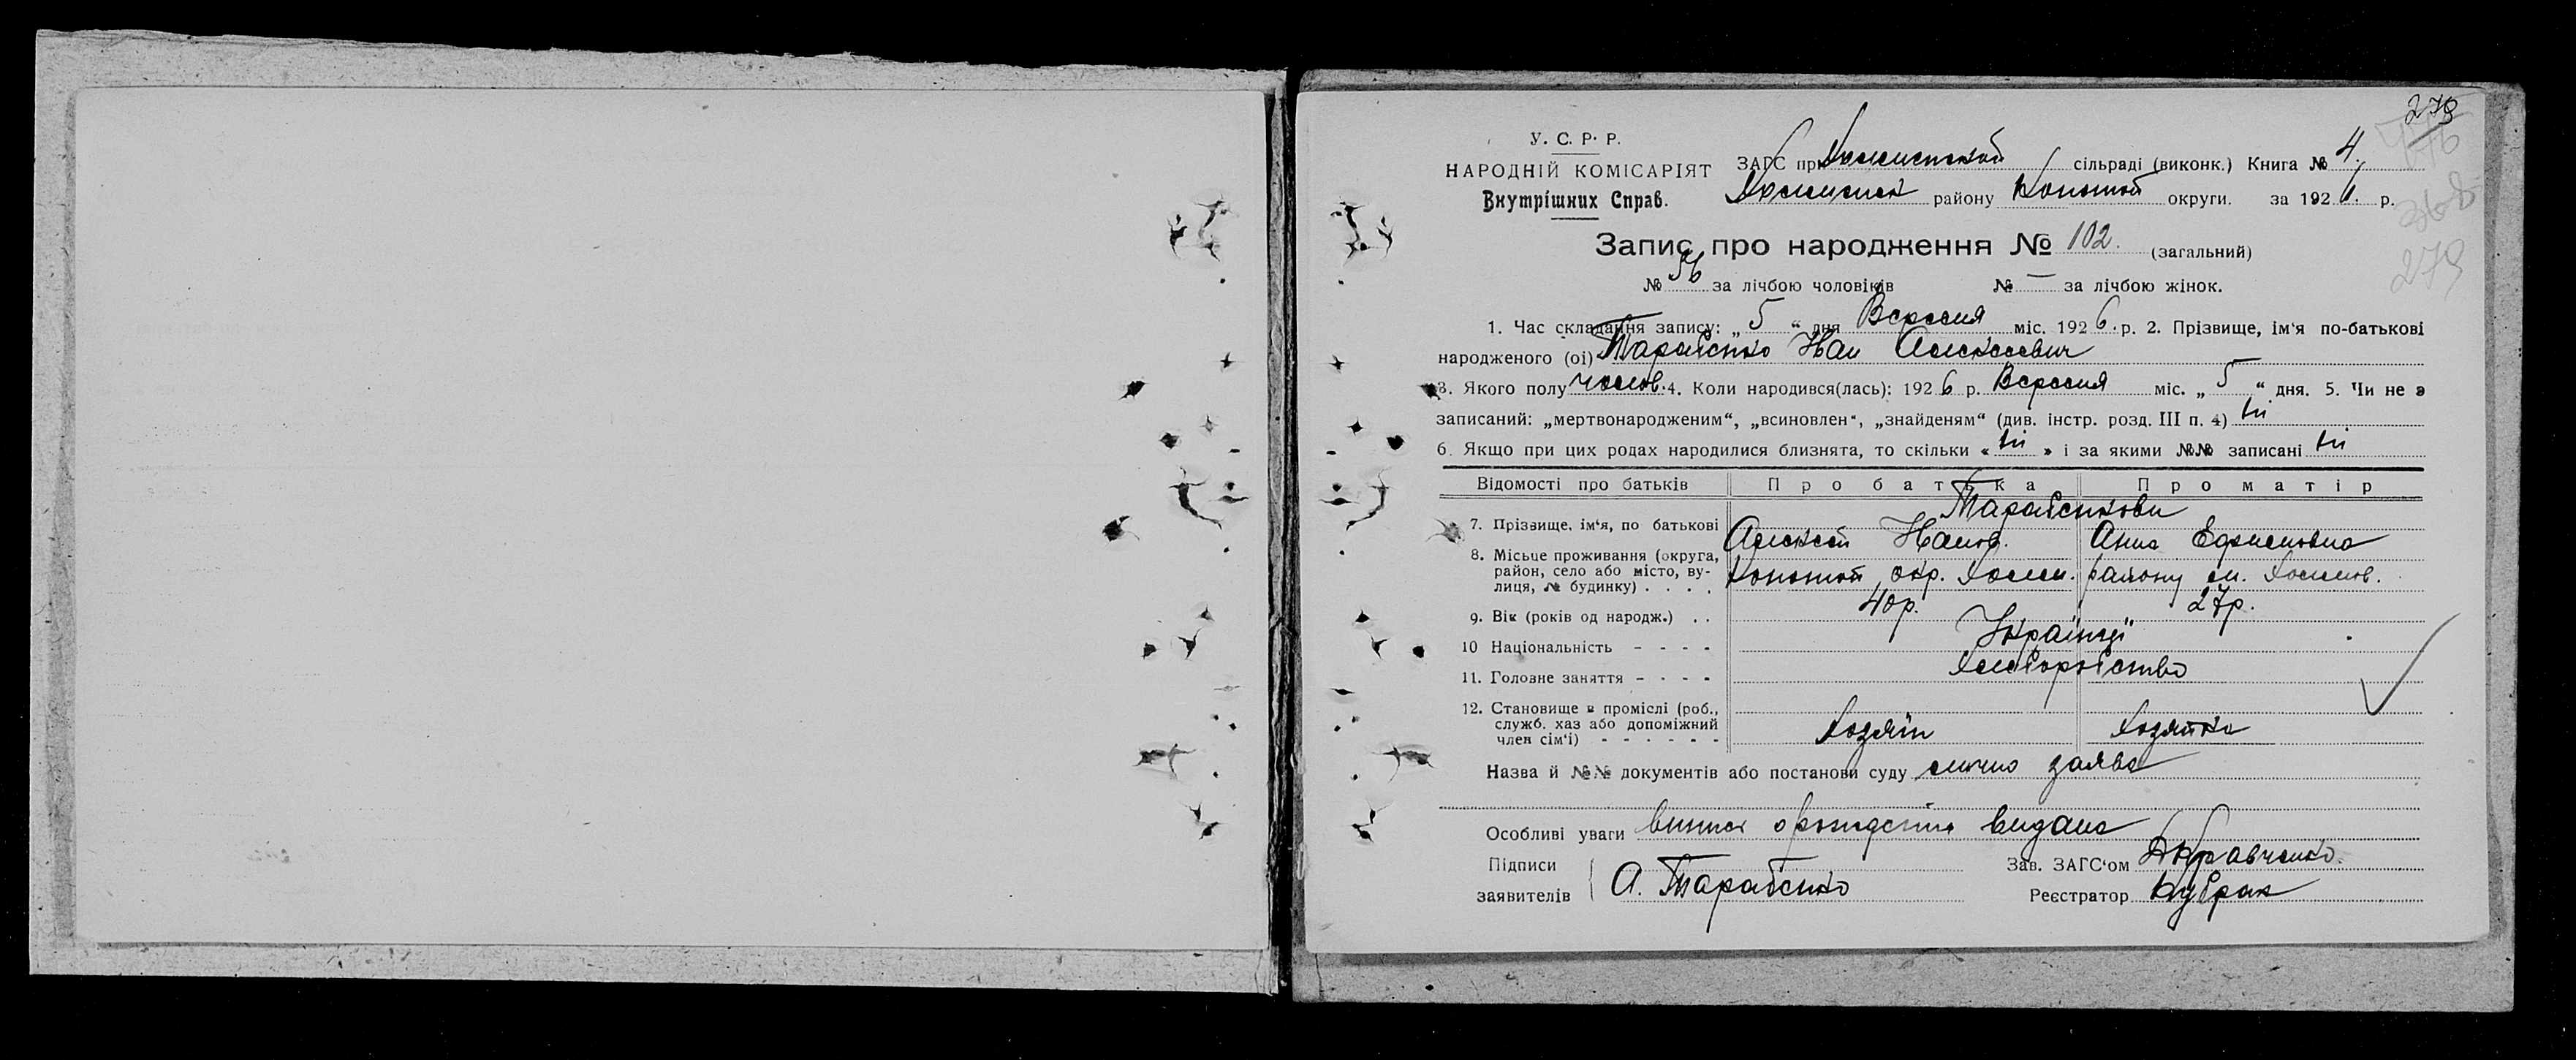 279
У. С. Р. Р.
НАРОДНІЙ КОМІСАРІЯТ
Внутрішних Справ.
ЗАГС при сільраді (виконк.) Книга № 4.
району Конотоп округи. за 1926. р.
368
279
Запис про народження № 102. (загальний)
№ 56 за лічбою чоловіків № — за лічбою жінок.
1. Час складання запису: „ 5 “ дня Вересня міс. 1926. р. 2. Прізвище, ім‘я по-батькові
народженого (ої) Тарабенко Иван Алексеевич
3. Якого полу чолов. 4. Коли народився(лась): 1926 р. Вересня міс. „ 5 “ дня. 5. Чи не є
записаний: „мертвонародженим“, „всиновлен“, „знайденям“ (див. інстр. розд. III п. 4) ні
6. Якщо при цих родах народилися близнята, то скільки « ні » і за якими №№ записані ні
Відомості про батьків Про батька Про матір
Тарабенкови
7. Прізвище, ім‘я, по батькові Алексей Иванов. Анна Ефимовна
8. Місьце проживання (округа,
район, село або місто, ву-
лиця, № будинку) . . . . Конотоп окр. району
9. Вік (років од народж.) . . 40р. 27р.
10 Національність - - - - Українці
11. Головне заняття - - - - Хлеборобство
12. Становище в проміслі (роб.,
служб. хаз або допоміжний
член сім‘ї) - - - - - - Хозяїн Хозяйка
Назва й №№ документів або постанови суду лично заява
Особливі уваги выпись о рождении видана
Підписи
заявителів А. Тарабенко
Зав. ЗАГС‘ом Кравченко.
Реєстратор Кубрак